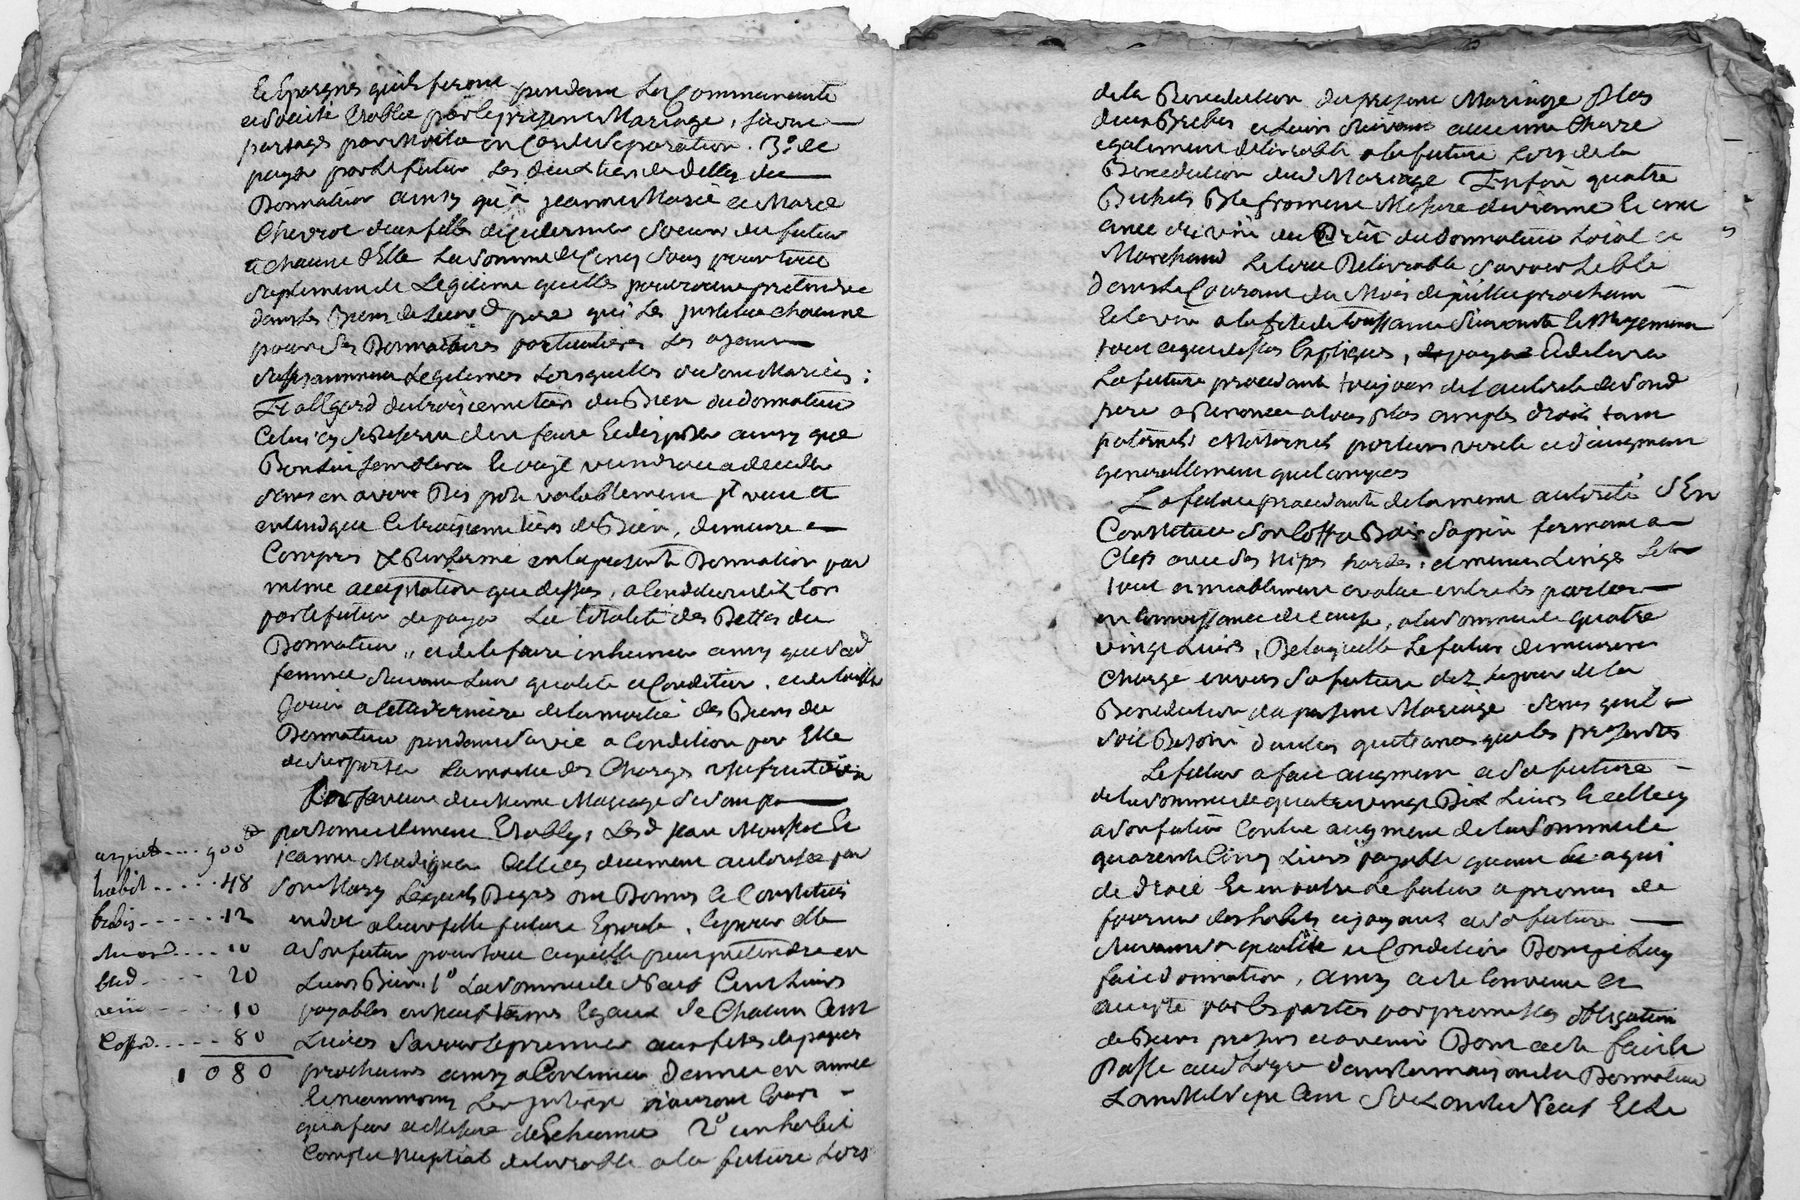 et Epargnes quils feront pendant la Communauté
et Societé Etablie par le present Mariage, seront
partagés par moitié en Cas de Separation. 3.º de
payer par le futur les deux tiers des dettes du
Donnateur ainsy qu'à jeanne Marie et Marie
Chevrot deux filles de ce dernier soeurs du futur
a chacune d'Elle la somme de Cinq sous pour tout
suplement de Legitime quelles pourroient pretendre
dans les Biens de Leur d pere qui les institue chacune
pour ses Donnataires particulieres les ayant
suffisamment Legitimées lorsquelles se sont Mariées :
Et a l'Egard du troisieme tiers du Bien du donnateur
Celuicy se Reserve d'en faire Et disposer ainsy que
Bon luy semblera Et ou il viendroit a deceder
sans en avoir disposé valablement il veut et
entend que le troisieme tiers de Bien, demeure
Compris & Renfermé en la presente Donnation par
même acceptation que dessus, a Condition
par le futur de payer La totalité des Dettes du
Donnateur, et de le faire inhumer ainsy que sad
femme suivant Leur qualité et Condition. et de laisser
Jouir a cette derniere de la moitié des Biens du
Donnateur pendant sa vie a Condition par Elle
de suporter la moitié des Charges usufruitieres
En faveur du meme Mariage se sont
personnellement Etablys, Les d jean Et
jeanne cellecy duement autorisée par
son Mary Lesquels De gres ont Donnés et Constitués
en dot a leur fille future Epouse, et pour elle
a son futur pour tout ce quelle peut pretendre en
Leurs Biens. 1º La somme de Neuf Cent Livres
payables en neuf termes Egaux de Chacun Cent
Livres savoir le premier aux fetes de paques
prochaines ainsy a Continuer d'année en année
Et neanmoins Les interets n'auront Cours
qu'a fur et Mesure des Echeances 2º un habit
Complet Nuptial delivrable a la future Lors
argent.... 900
habit...... 48
brebis...... 12
.... 10
bled.... 20
vin.... 10
Coffre..... 80
1080
de la Benediction du present Mariage Plus
deux Brebis et Leurs suivants avec une Chevre
egalement delivrable a la future lors de la
Benediction dud Mariage Enfin quatre
Bichets Blé froment Mesure de vienne Et une
anée de vin du Cru du donnateur Loial et
Marchand Le tout Delivrable savoir Le blé
dans le Courant du Mois de juillet prochain
Et le vin a la fete de toussaint suivante Et Moyennant
tout ce que dessus Expliqué,
La future procedante toujours de l'autorité de sond
pere a Renoncé a tous plus amples droits tant
paternels Maternels portions virile et d'augment
generallement quelconques
La future procedante de la meme autorité s'En
Constituée son Coffre Bois sapin fermant a
Clefs avec ses nipes hardes, et menu Linge Le
tout amiablement evalué entre les parties
en Connoissance de Cause, a la somme de quatre
vingt Livres, De laquelle Le futur demeurera
Chargé envers sa future dez le jour de la
Benediction du present Mariage sans quil
soit Besoin d'autres quittances que les presentes
Le futur a fait augment a sa future
de la somme de quatre vingt Dix Livres Et cellecy
a son futur Contre augment de la somme de
quarente Cinq Livres payable quant a qui
de droit Et en outre Le futur a promis de
fournir des habits et joyaux a sa future
suivant sa qualité et Condition Dont il Luy
fait donnation, ainsy a eté Convenu et
accepté par les parties par promesses obligation
de Biens presents et avenir Dont acte fait et
Passé aud dans la maison du Donnateur
L'an Mil sept Cent Soixante Neuf Et Le